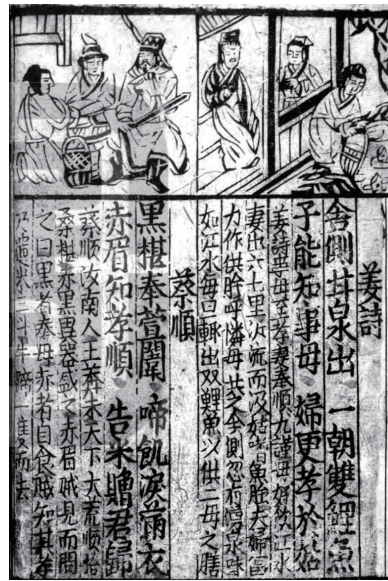 姜詩
舍側井泉出 一朝雙鯉魚
子能知事母 婦更孝於姑
姜詩事母至孝妻奉順尤謹母好飲江水
妻出六七里汲流而汲姑嗜魚膾夫婦常
力作供膾呼隣母共之舍側忽有湧泉味
如江水每日輒出双鯉魚以供二母之膳
蔡順
黑椹奉萱闈 啼飢淚滿衣
赤眉知孝順 米贈君歸
蔡順汝南人王莽末天下大荒順拾
桑椹赤黑異器盛之赤眉賊見而問
之曰黑者奉母赤者自食賊知其孝
米三斗牛蹄一隻而去